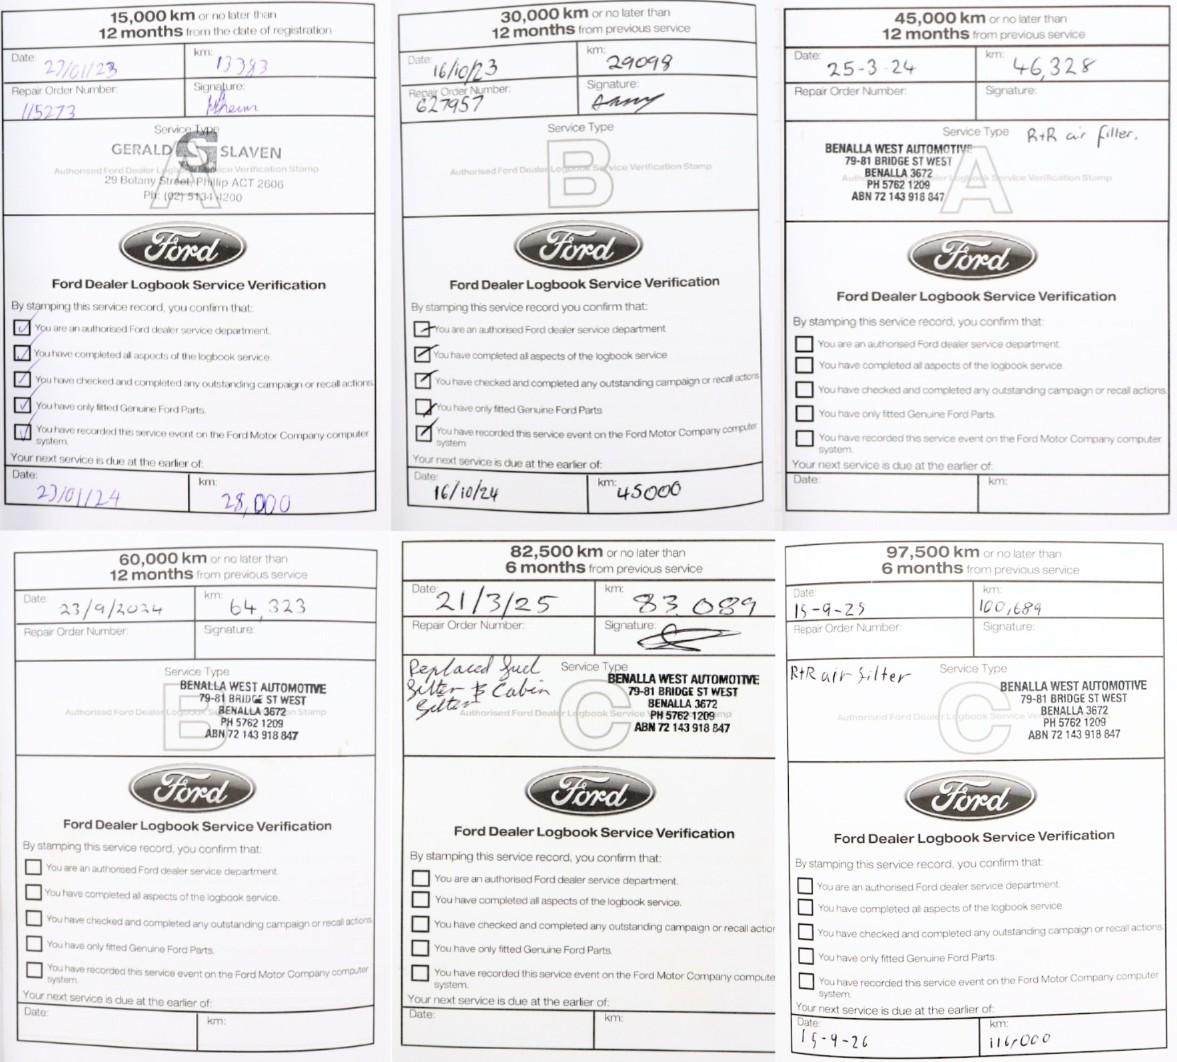 15,000 km or no later than
12 months from the date of registration
Date:
km:
13383
Repair Order Number:
Signature:
115273
Service Type
GERALD S SLAVEN
Authorised Ford Dealer Logbook Service Verification Stamp
29 Botany Street, Phillip ACT 2606
Ph: (02) 5134 1200
A
Ford
Ford Dealer Logbook Service Verification
By stamping this service record, you confirm that:
You are an authorised Ford dealer service department.
You have completed all aspects of the logbook service.
You have checked and completed any outstanding campaign or recall actions.
You have only fitted Genuine Ford Parts.
You have recorded this service event on the Ford Motor Company computer
system.
Your next service is due at the earlier of:
Date:
km:
28,000
30,000 km or no later than
12 months from previous service
Date:
16/10/23
km:
29098
Repair Order Number:
627957
Signature:
Service Type
Authorised Ford Dealer Logbook Service Verification Stamp
B
Ford
Ford Dealer Logbook Service Verification
By stamping this service record you confirm that:
You are an authorised Ford dealer service department
You have completed all aspects of the logbook service
You have checked and completed any outstanding campaign or recall actions
You have only fitted Genuine Ford Parts
You have recorded this service event on the Ford Motor Company computer
system
Your next service is due at the earlier of:
Date:
16/10/24
km:
45000
45,000 km or no later than
12 months from previous service
Date:
25-3-24
km:
46,328
Repair Order Number:
Signature:
Service Type
R+R air filter.
BENALLA WEST AUTOMOTIVE
79-81 BRIDGE ST WEST
BENALLA 3672
PH 5762 1209
ABN 72 143 918 847
Authorised Ford Dealer Logbook Service Verification Stamp
A
Ford
Ford Dealer Logbook Service Verification
By stamping this service record, you confirm that:
You are an authorised Ford dealer service department.
You have completed all aspects of the logbook service.
You have checked and completed any outstanding campaign or recall actions.
You have only fitted Genuine Ford Parts.
You have recorded this service event on the Ford Motor Company computer
system.
Your next service is due at the earlier of:
Date:
km:
60,000 km or no later than
12 months from previous service
Date:
23/9/2024
km:
64,323
Repair Order Number:
Signature:
Service Type
BENALLA WEST AUTOMOTIVE
79-81 BRIDGE ST WEST
BENALLA 3672
PH 5762 1209
ABN 72 143 918 847
Authorised Ford Dealer Logbook Service Verification Stamp
B
Ford
Ford Dealer Logbook Service Verification
By stamping this service record, you confirm that:
You are an authorised Ford dealer service department.
You have completed all aspects of the logbook service.
You have checked and completed any outstanding campaign or recall actions.
You have only fitted Genuine Ford Parts.
You have recorded this service event on the Ford Motor Company computer
system.
Your next service is due at the earlier of:
Date:
km:
82,500 km or no later than
6 months from previous service
Date:
21/3/25
km:
83,089
Repair Order Number:
Signature:
Replaced fuel
filter & Cabin
filter
Service Type
BENALLA WEST AUTOMOTIVE
79-81 BRIDGE ST WEST
BENALLA 3672
PH 5762 1209
ABN 72 143 918 847
Authorised Ford Dealer Logbook Service Verification Stamp
C
Ford
Ford Dealer Logbook Service Verification
By stamping this service record, you confirm that:
You are an authorised Ford dealer service department.
You have completed all aspects of the logbook service.
You have checked and completed any outstanding campaign or recall action
You have only fitted Genuine Ford Parts.
You have recorded this service event on the Ford Motor Company compute
system.
Your next service is due at the earlier of:
Date:
km:
97,500 km or no later than
6 months from previous service
Date:
15-9-25
km:
100,689
Repair Order Number:
Signature:
R+R air filter
Service Type
BENALLA WEST AUTOMOTIVE
79-81 BRIDGE ST WEST
BENALLA 3672
PH 5762 1209
ABN 72 143 918 847
Authorised Ford Dealer Logbook Service
C
Ford
Ford Dealer Logbook Service Verification
By stamping this service record, you confirm that:
You are an authorised Ford dealer service department.
You have completed all aspects of the logbook service.
You have checked and completed any outstanding campaign or recall actions.
You have only fitted Genuine Ford Parts.
You have recorded this service event on the Ford Motor Company computer
system.
Your next service is due at the earlier of:
Date:
15-9-26
km:
116,000